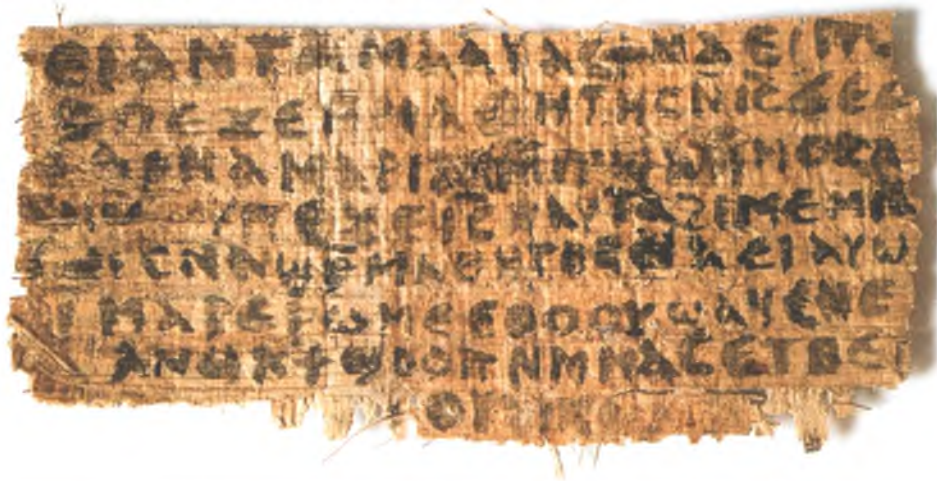 ⲉⲓⲁⲛⲧⲁⲙⲁⲁⲩⲁⲥϯⲛⲁⲉⲓⲡ
ⲙⲁⲑⲏⲧⲏⲥⲛⲓ̅ⲥ̅ϫⲉⲥ
ⲁⲣⲛⲁⲙⲁⲣⲓⲁⲙ
ⲡⲉϫⲉⲓ̅ⲥ̅ⲛⲁⲩⲧⲁϩⲓⲙⲉⲙⲛ
ⲥⲛⲁϣⲣⲙⲁⲑⲏⲧⲏⲥⲛⲁⲉⲓⲁⲩⲱ
ⲙⲁⲣⲉⲣⲱⲙⲉⲉⲑⲟⲟⲩϣⲁϥⲉⲛⲉ
ⲁⲛⲟⲕϯϣⲟⲟⲡⲛⲙⲙⲁⲥⲉⲧⲃⲉ